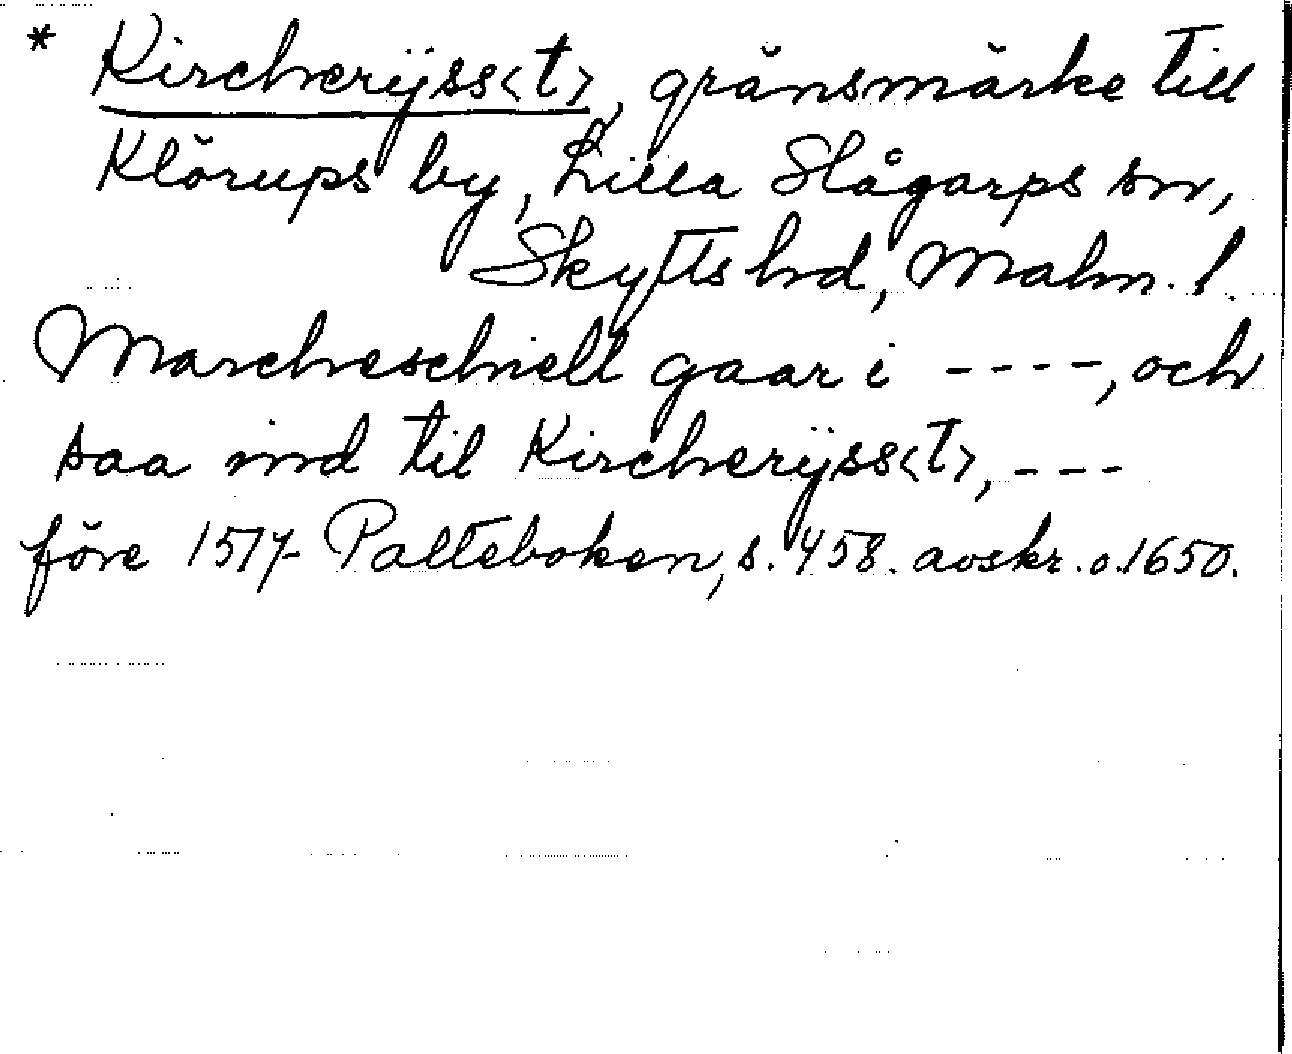 * Kircherÿss<t>, gränsmärke till
Klörups by, Lilla Slågarps sn,
Skytts hd, Malm. l.
Marcheschiell gaar i ----, och
saa ind til Kircherÿss<t>, ---
före 1517 Palteboken, s. 458. avskr. o. 1650.